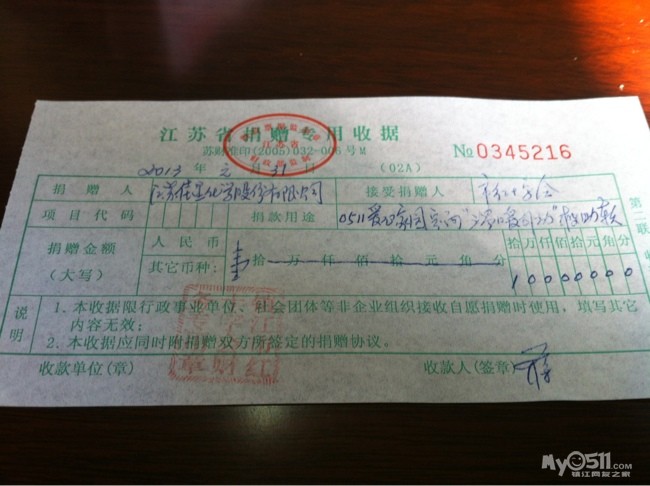 江苏省捐赠专用收据
苏财准印(2005)032-006号M
No 0345216
2013 年 元 月 31 日 (02A)
捐赠人 江苏 化学股份有限公司 接受捐赠人 市红十字会
项目代码 捐款用途 0511爱心 助
捐赠金额
(大写)
人民币
其它币种: 壹 拾 万 仟 佰 拾 元 角 分
拾 万 仟 佰 拾 元 角 分
1 0 0 0 0 0 0 0
说明
1.本收据限行政事业单位、社会团体等非企业组织接收自愿捐赠时使用,填写其它
内容无效;
2.本收据应同时附捐赠双方所签定的捐赠协议。
收款单位(章) 收款人(签章)
第二联
My0511.com
镇江网友之家